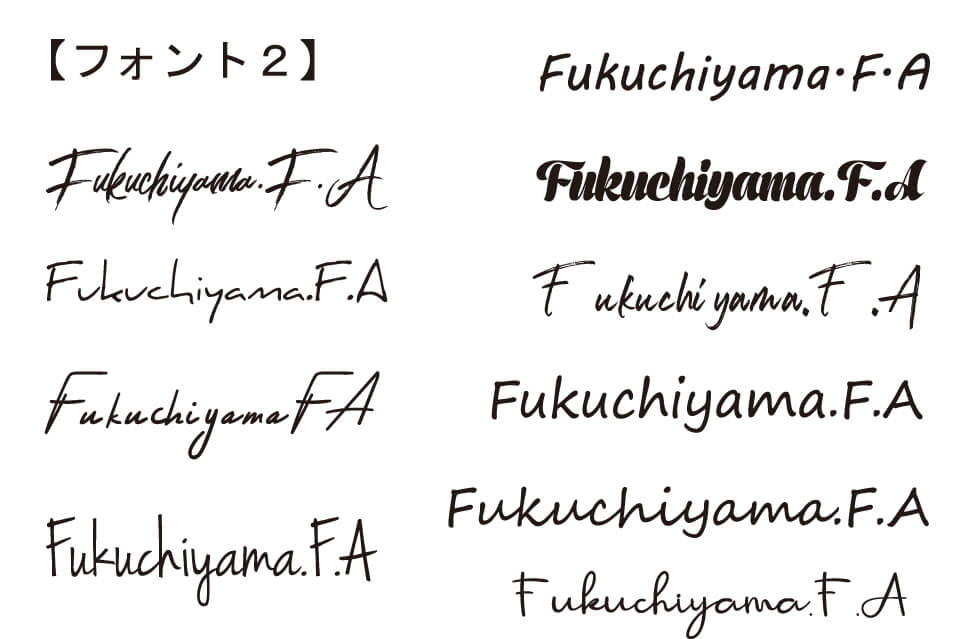 【フォント２】
Fukuchiyama.F.A
Fukuchiyama.F.A
FukuchiyamaFA
Fukuchiyama.F.A
Fukuchiyama・F・A
Fukuchiyama.F.A
Fukuchiyama.F.A
Fukuchiyama.F.A
Fukuchiyama.F.A
Fukuchiyama.F.A